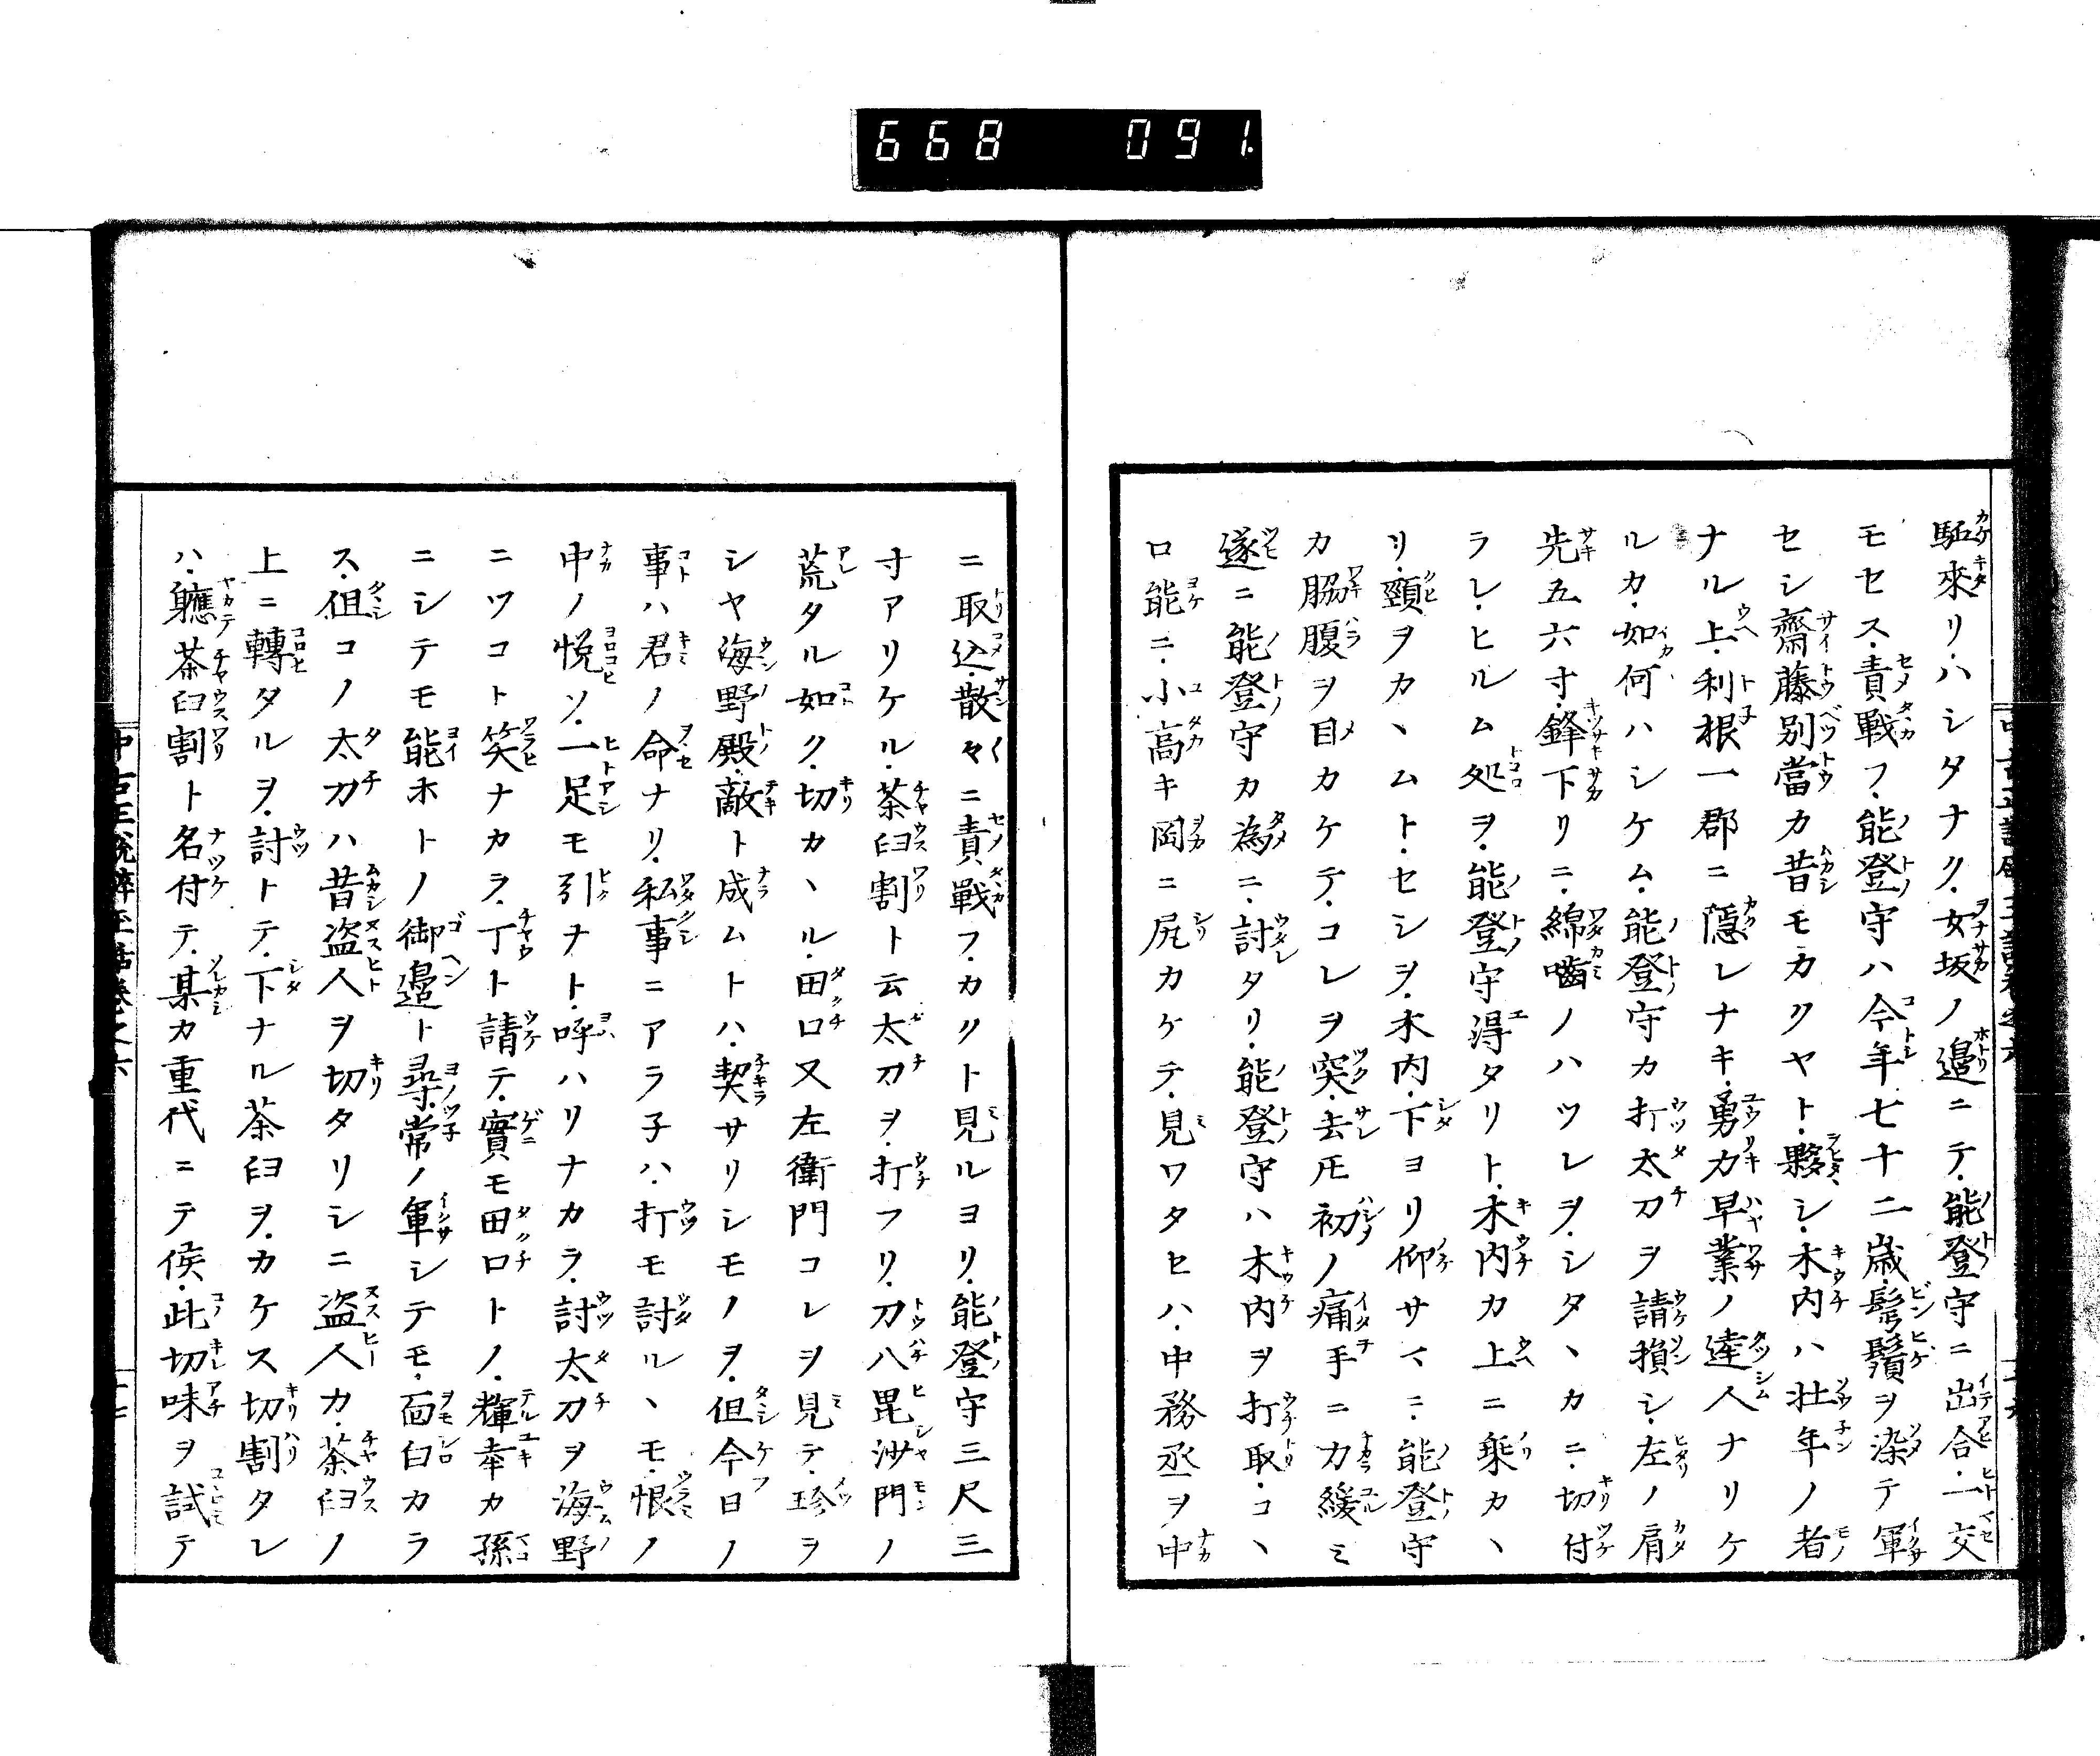 668 091.
駈來リ・ハシタナク・女坂ノ邉ニテ・能登守ニ出合・一交
モセス・責戰フ・能登守ハ今年七十二歳・髩鬚ヲ染テ軍
セシ齋藤別當カ昔モカクヤト・夥シ・木内ハ壮年ノ者
ナル上・利根一郡ニ隱レナキ・勇力早業ノ達人ナリケ
ルカ・如何ハシケム・能登守カ打太刀ヲ請損シ・左ノ肩
先五六寸・鋒下リニ・綿嚙ノハツレヲ・シタヽカニ・切付
ラレ・ヒルム処ヲ・能登守得タリト・木内カ上ニ乗カヽ
リ・頸ヲカヽムト・セシヲ・木内・下ヨリ仰サマニ・能登守
カ脇腹ヲ目カケテ・コレヲ突・去𪜈初ノ痛手ニ力緩ミ
遂ニ能登守カ為ニ・討タリ・能登守ハ木内ヲ打取・コヽ
ロ能ニ・小高キ岡ニ尻カケテ・見ワタセハ・中務丞ヲ中
ニ取込・散々ニ責戰フ・カクト見ルヨリ・能登守三尺三
寸アリケル・茶臼割ト云太刀ヲ・打フリ・刀八毘沙門ノ
荒タル如ク・切カヽル・田口又左衛門コレヲ見テ・珍ヲ
シヤ海野殿・敵ト成ムトハ・契サリシモノヲ・但今日ノ
事ハ君ノ命ナリ・私事ニアラ子ハ・打モ討ルヽモ・恨ノ
中ノ悦ソ・一足モ引ナト・呼ハリナカラ・討太刀ヲ海野
ニツコト笑ナカラ・丁ト請テ・實モ田口トノ・輝幸カ孫
ニシテモ能ホトノ御邉ト尋常ノ軍シテモ・面白カラ
ス・但コノ太刀ハ昔盗人ヲ切タリシニ盗人カ・茶臼ノ
上ニ轉タルヲ・討トテ・下ナル茶臼ヲ・カケス切割タレ
ハ・軈茶臼割ト名付テ・某カ重代ニテ侯・此切味ヲ試テ